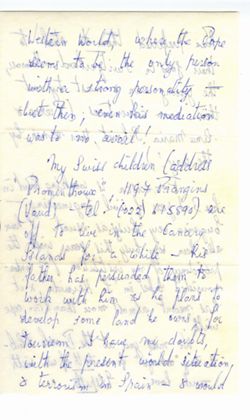 Western World, where the Pope
seems to be the only person
with a strong personality
but then, even his mediation
was to no avail!
"My Swiss children" (address
Promenthoux" 1197 Prangins
(Vaud) tel: (022) 615590) are
off to live the Canaries
Islands for a while – his
father has persuaded them to
work with him as he plans to
develop some land he owns for
tourism. I have my doubts,
with the present world situation,
& terrorism in Spain & would